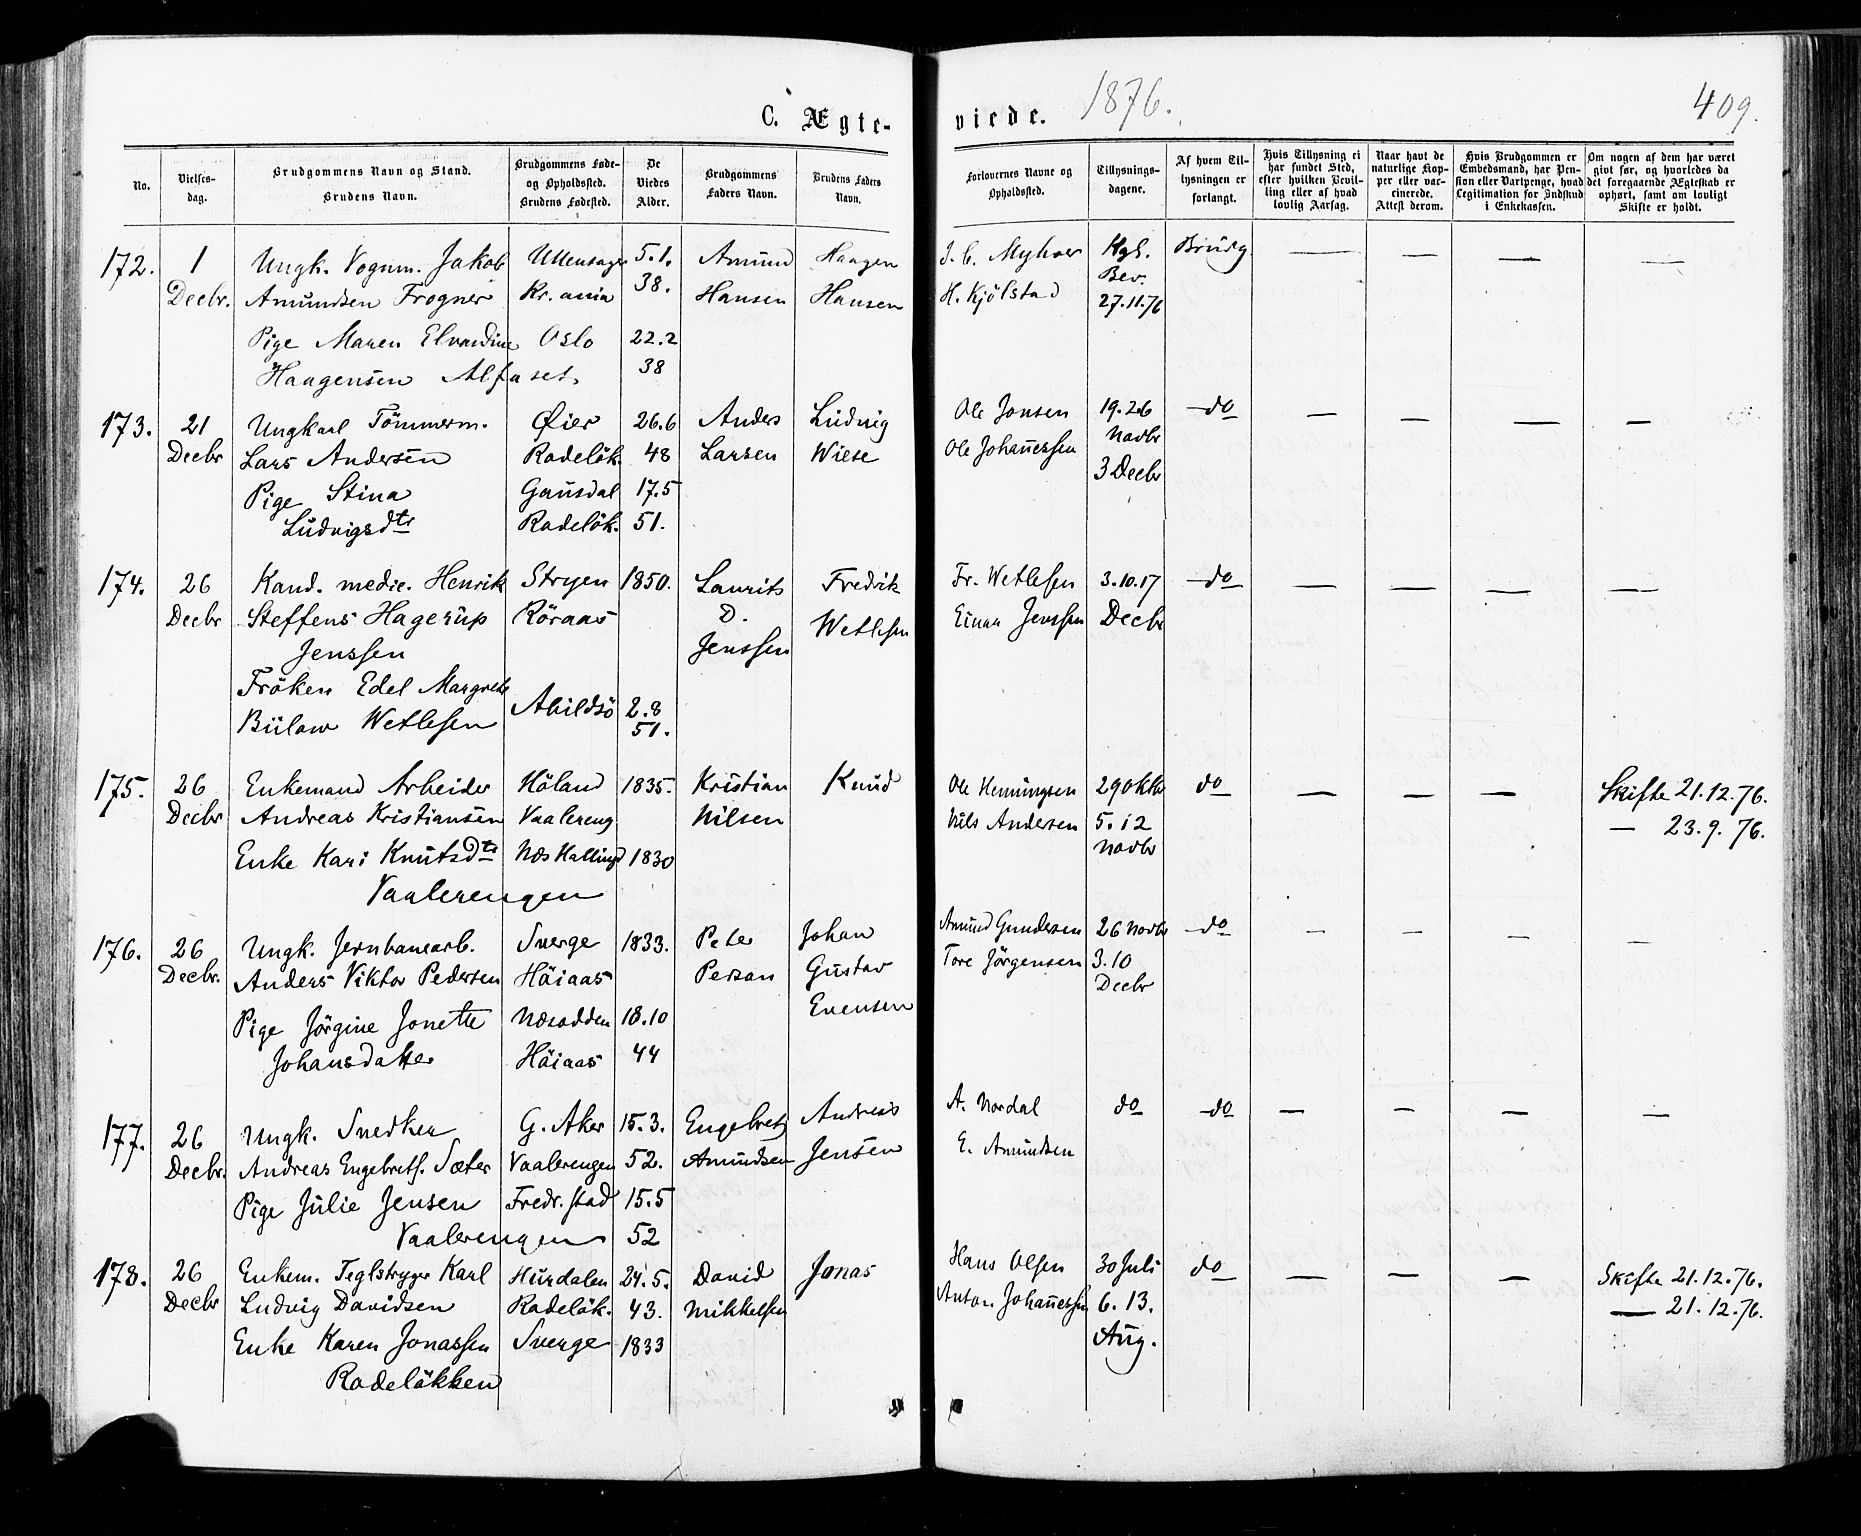 C. Ægte-
viede.
1876.
409.
No.
Vielses-
dag.
Brudgommens Navn og Stand.
Brudens Navn.
Brudgommens Føde-
og Opholdssted.
Brudens Fødested.
De
Viedes
Alder.
Brudgommens
Faders Navn.
Brudens Faders
Navn.
Forlovernes Navne og
Opholdssted.
Tillysnings-
dagene.
Af hvem Til-
lysningen er
forlangt.
Hvis Tillysning ei
har fundet Sted,
efter hvilken Bevil-
ling eller af hvad
lovlig Aarsag.
Naar havt de
naturlige Kop-
per eller vac-
cinerede.
Attest derom.
Hvis Brudgommen er
Embedsmand, har Pen-
sion eller Vartpenge, hvad
Legitimation for Indskud
i Enkekassen.
Om nogen af dem har været
givt før, og hvorledes da
det foregaaende Ægteskab er
ophørt, samt om lovligt
Skifte er holdt.
172.
1
Decbr.
Ungk. Vognm. Jakob
Amundsen Frogner
Pige Maren Elvardine
Haagensen Alfaset.
Ullensager
Kr.ania
Oslo
5.1.
38.
22.2
38
Amund
Hansen
Haagen
Hansen
J. C. Myhrer
H. Kjölstad
Kgl.
Bev.
27.11.76
Brudg
— — — —
173.
21
Decbr
Ungkarl Tömmerm.
Lars Andersen
Pige Stina
Ludvigsdtr
Øier
Rodelök.
Gausdal
Rodelök.
26.6
48
17.5
51.
Anders
Larsen
Ludvig
Wiese
Ole Jonsen
Ole Johanessen
19.26
Novbr
3 Decbr
do
— — — —
174.
26
Decbr
Kand. medic. Henrik
Steffens Hagerup
Jenssen
Fröken Edel Margrete
Bülow Wetlesen
Stryen
Röraas
Abildsö
1850.
2.8
51.
Laurits
D.
Jenssen
Fredrik
Wetlesen
Fr. Wetlesen
Einar Jenssen
3.10.17
Decbr
do
— — — —
175.
26
Decbr
Enkemand Arbeider
Andreas Kristiansen
Enke Kari Knutsdtr
Vaalerengen
Höland
Vaalereng
Næs Hallingd
1835.
1830
Kristian
Nilsen
Knud
Ole Henningsen
Nils Andersen
29 Oktbr
5.12
Novbr
do
— — —
Skifte 21.12.76.
— 23.9.76.
176.
26
Decbr.
Ungk. Jernbanearb.
Anders Viktor Pedersen
Pige Jörgine Jonette
Johansdatter
Sverge
Höiaas
Næsodden
Höiaas
1833.
18.10
44
Peter
Person
Johan
Gustav
Evensen
Amund Gundersen
Tore Jörgensen
26 Novbr
3.10
Decbr
do
— — — —
177.
26
Decbr.
Ungk. Snedker
Andreas Engebrets. Sæter
Pige Julie Jensen
Vaalerengen
G. Aker
Vaalerengen
Fredr.stad
15.3.
52.
15.5
52
Engebret
Amundsen
Andreas
Jensen
A. Nordal
E. Amundsen
do
do
— — — —
178.
26
Decbr
Enkem. Teglstryger Karl
Ludvig Davidsen
Enke Karen Jonassen
Rodelökken
Hurdalen
Rodelök.
Sverge
24.5.
43.
1833
David
Mikkelsen
Jonas
Hans Olsen
Anton Johanessen
30 Juli
6.13.
Aug.
do
— — —
Skifte 21.12.76.
— 21.12.76.